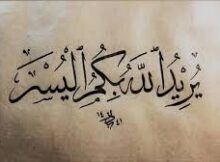 يُرِيدُ اللَّهُ بِكُمُ الْيُسْرَ